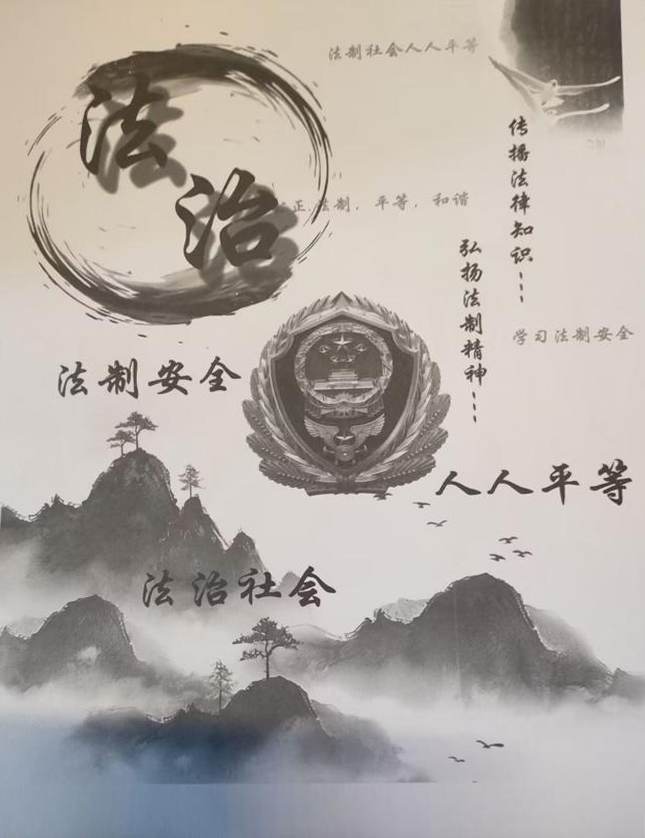 法制社会人人平等
法治
正,法制,平等,和谐
传播法律知识…
弘扬法制精神…
学习法制安全
法制安全
人人平等
法治社会